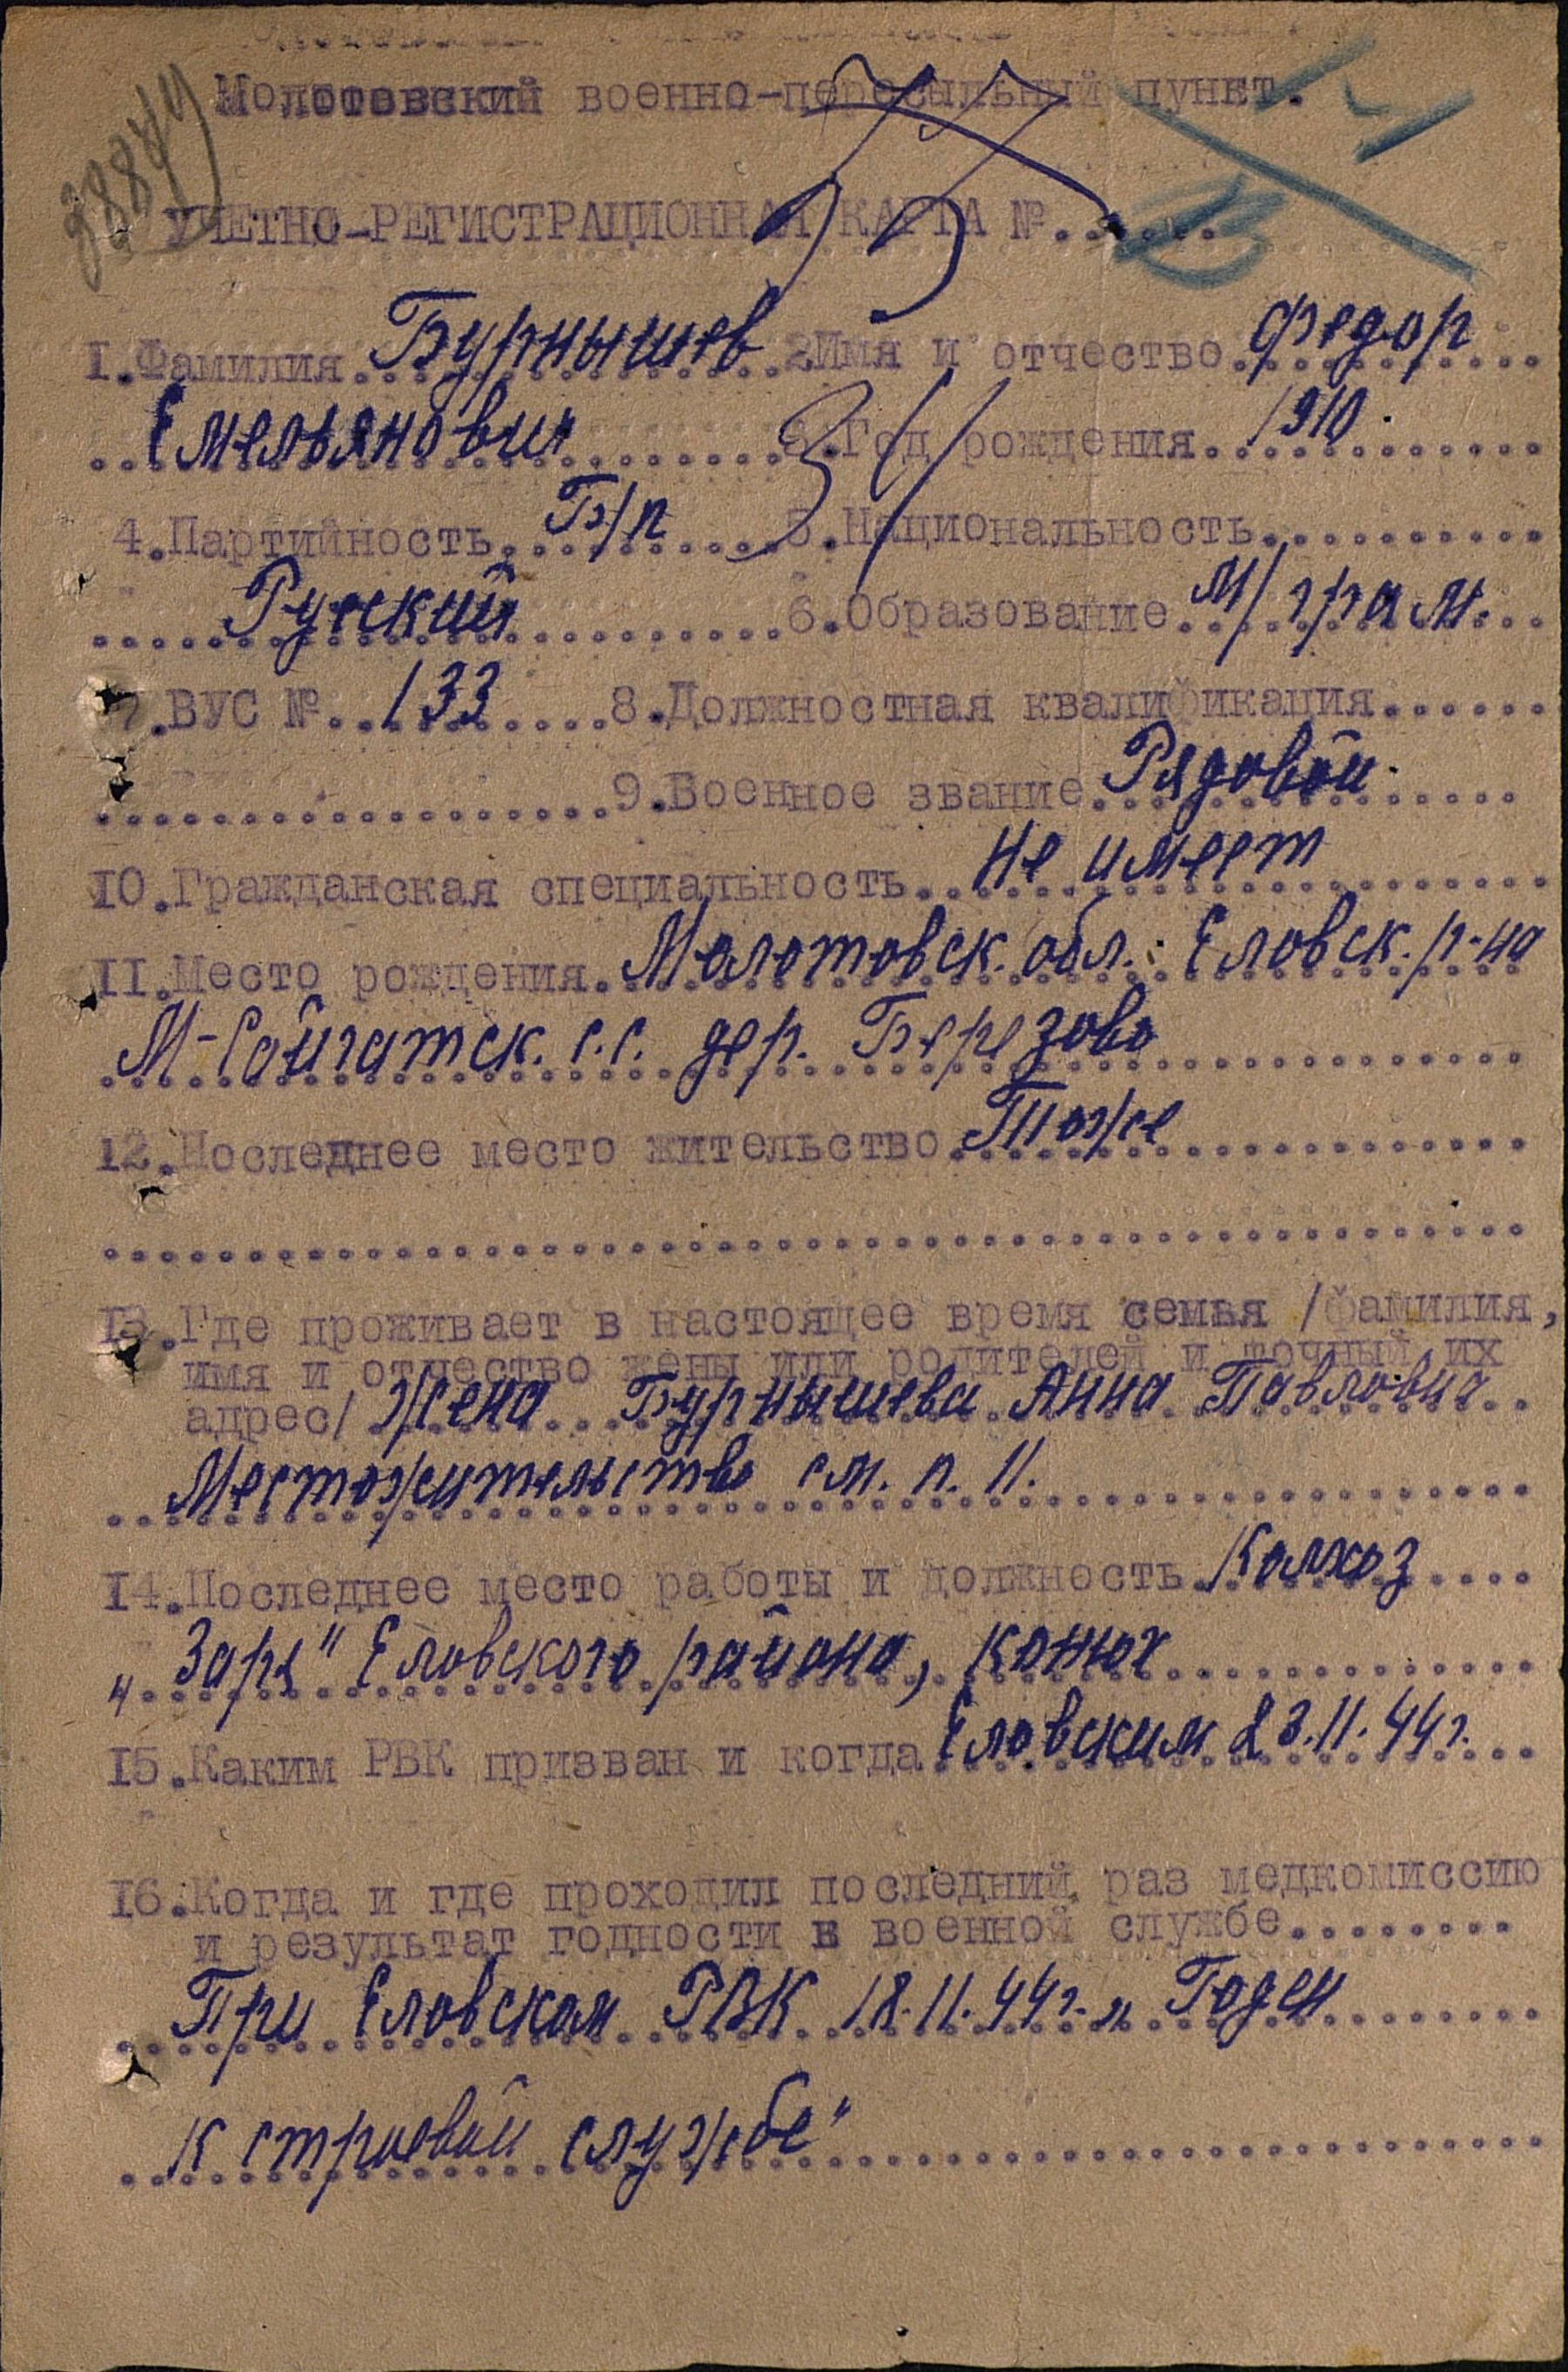 Молотовский военно-пересыльный пункт.
УЧЕТНО-РЕГИСТРАЦИОННАЯ КАРТА №......
1.Фамилия Бурнышев 2.Имя и отчество Федор
Емельянович 3.Год рождения 1910
4.Партийность Б/п 5.Национальность
Руский 6.Образование М/грам.
7.ВУС № 133 8.Должностная квалификация
9.Военное звание Рядовой
10.Гражданская специальность Не имеет
11.Место рождения Молотовск. обл. Еловск. р-на
М-Сойгатск. с.с. дер. Березово
12.Последнее место жительство Тоже
13.Где проживает в настоящее время семья /фамилия,
имя и отчество жены или родителей и точный их
адрес/ Жена Бурнышева Анна Павловна
Местожительство см. п. 11.
14.Последнее место работы и должность Колхоз
„Заря" Еловского района, конюх
15.Каким РВК призван и когда Еловским 23.11.44г.
16.Когда и где проходил последний раз медкомиссию
и результат годности в военной службе
При Еловском РВК 18.11.44г. „Годен
к строевой службе"